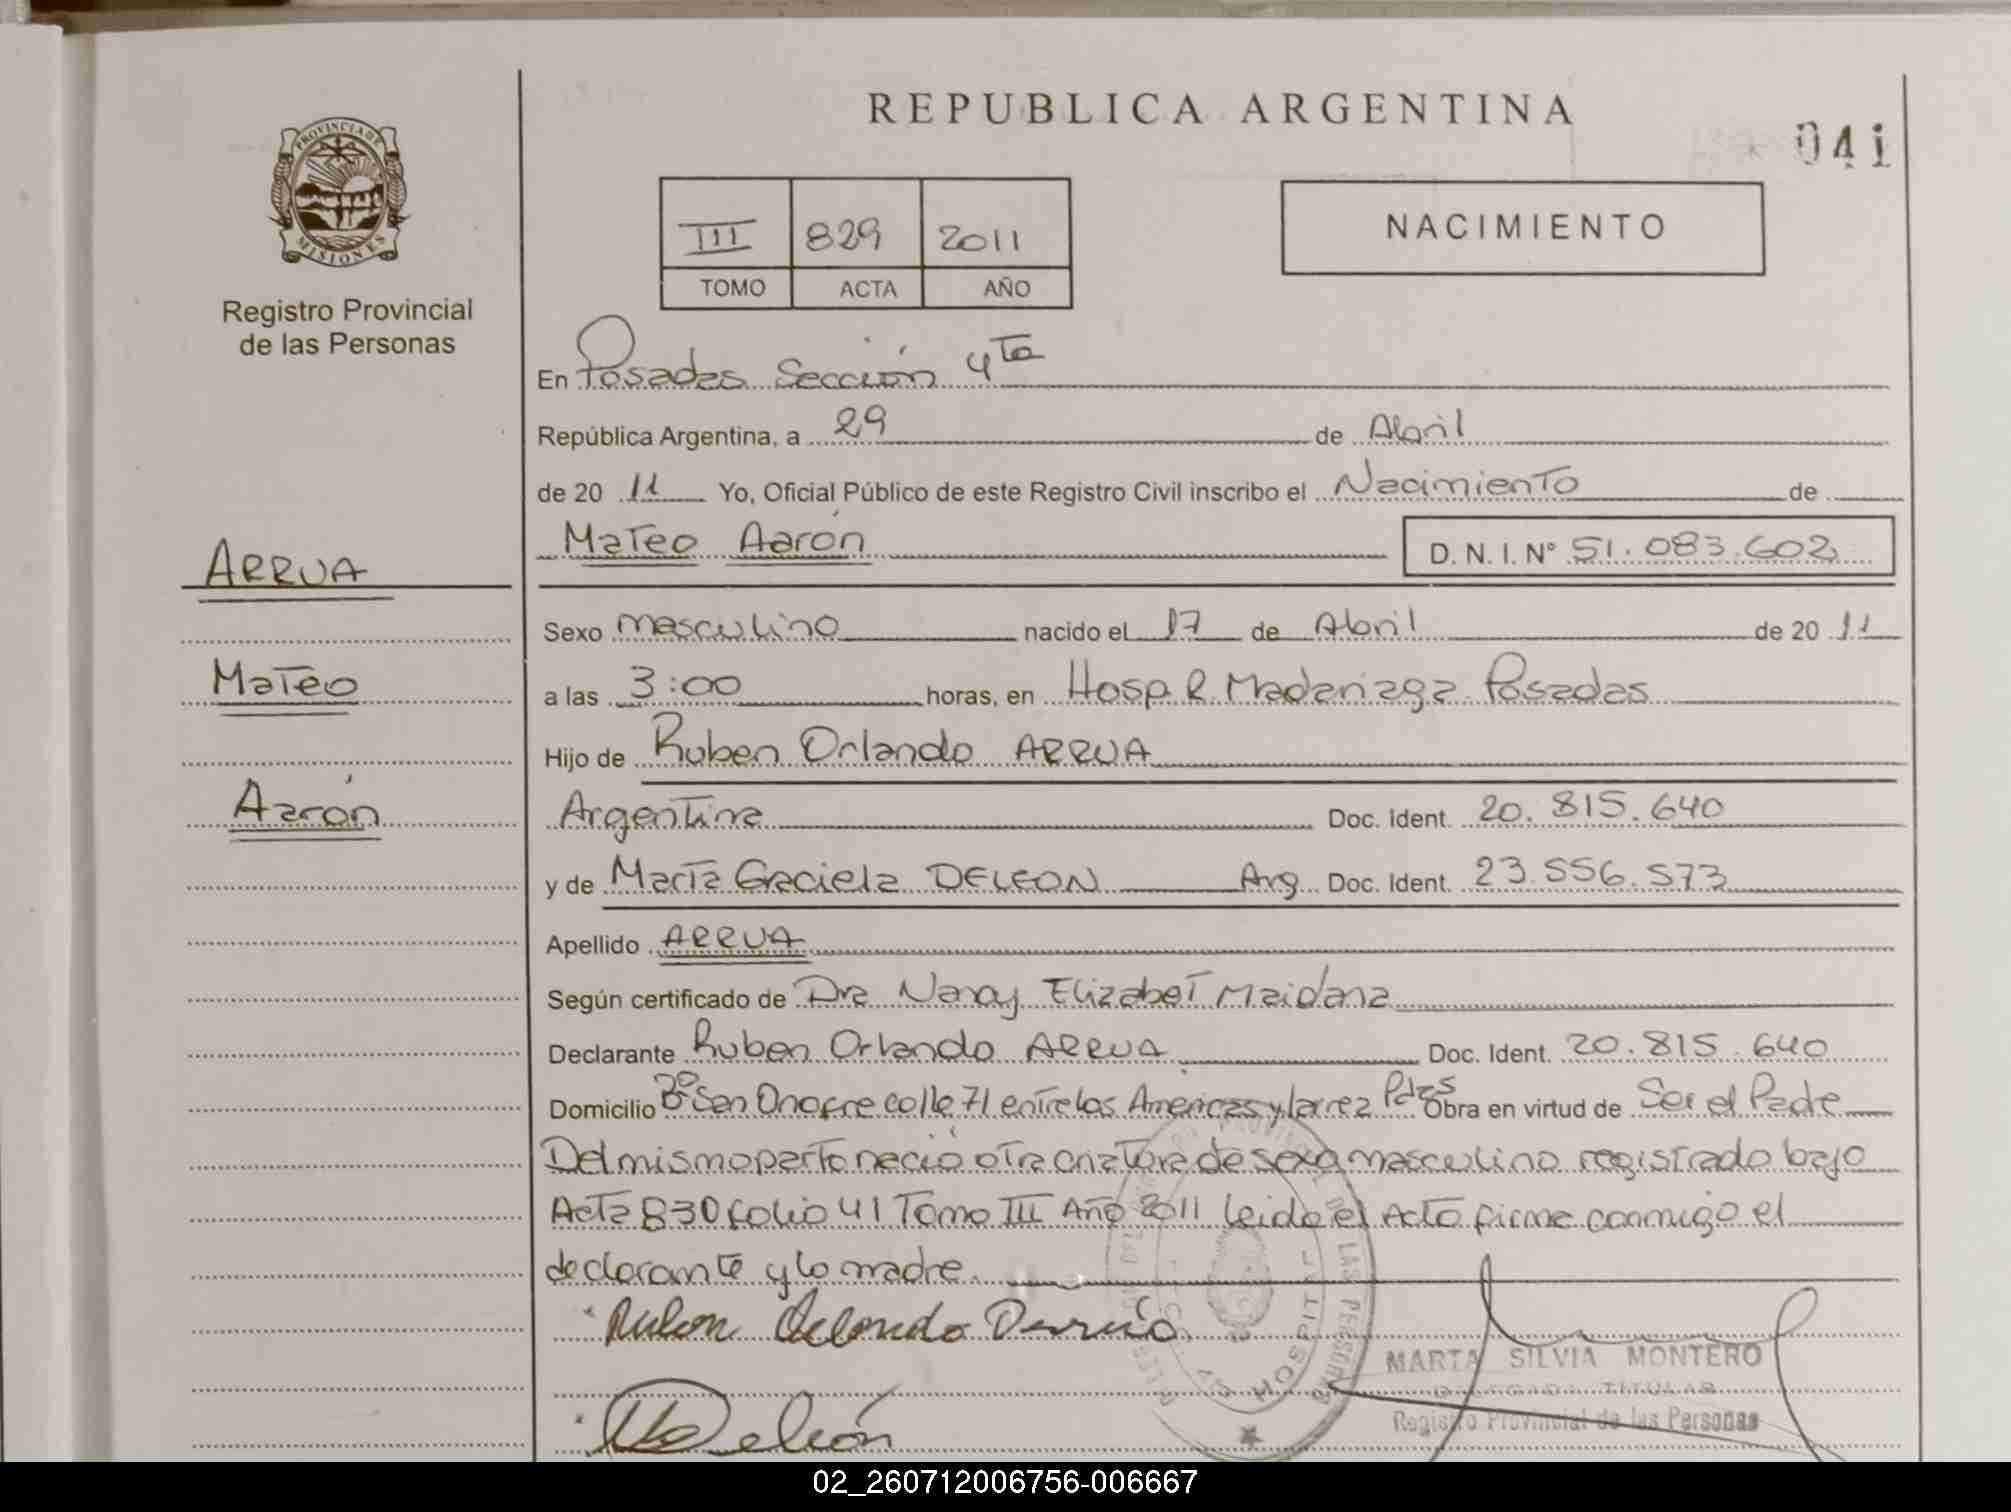 REPUBLICA ARGENTINA
041
PROVINCIA DE
MISIONES
Registro Provincial
de las Personas
III 829 2011
TOMO ACTA AÑO
NACIMIENTO
En Posadas Sección 4ta
República Argentina, a 29 de Abril
de 20 11 Yo, Oficial Público de este Registro Civil inscribo el Nacimiento de
Mateo Aarón D. N. I. Nº 51.083.602
ARRUA
Mateo
Aarón
Sexo masculino nacido el 17 de Abril de 20 11
a las 3:00 horas, en Hosp. R. Madariaga Posadas
Hijo de Ruben Orlando ARRUA
Argentina Doc. Ident. 20.815.640
y de María Graciela DELEON Arg. Doc. Ident. 23.556.573
Apellido ARRUA
Según certificado de Dra Nancy Elizabet Maidana
Declarante Ruben Orlando ARRUA Doc. Ident. 20.815.640
Domicilio Bº San Onofre calle 71 entre las Americas y Pdas Obra en virtud de Ser el Padre
Del mismo parto nació otra criatura de sexo masculino registrado bajo
Acta 830 folio 41 Tomo III Año 2011 leida el Acta firma conmigo el
declarante y la madre.
Ruben Orlando Arrua
Deleón
LAS PERSONAS
HOSPITAL
MARTA SILVIA MONTERO
DELEGADA TITULAR
Registro Provincial de las Personas
02_260712006756-006667